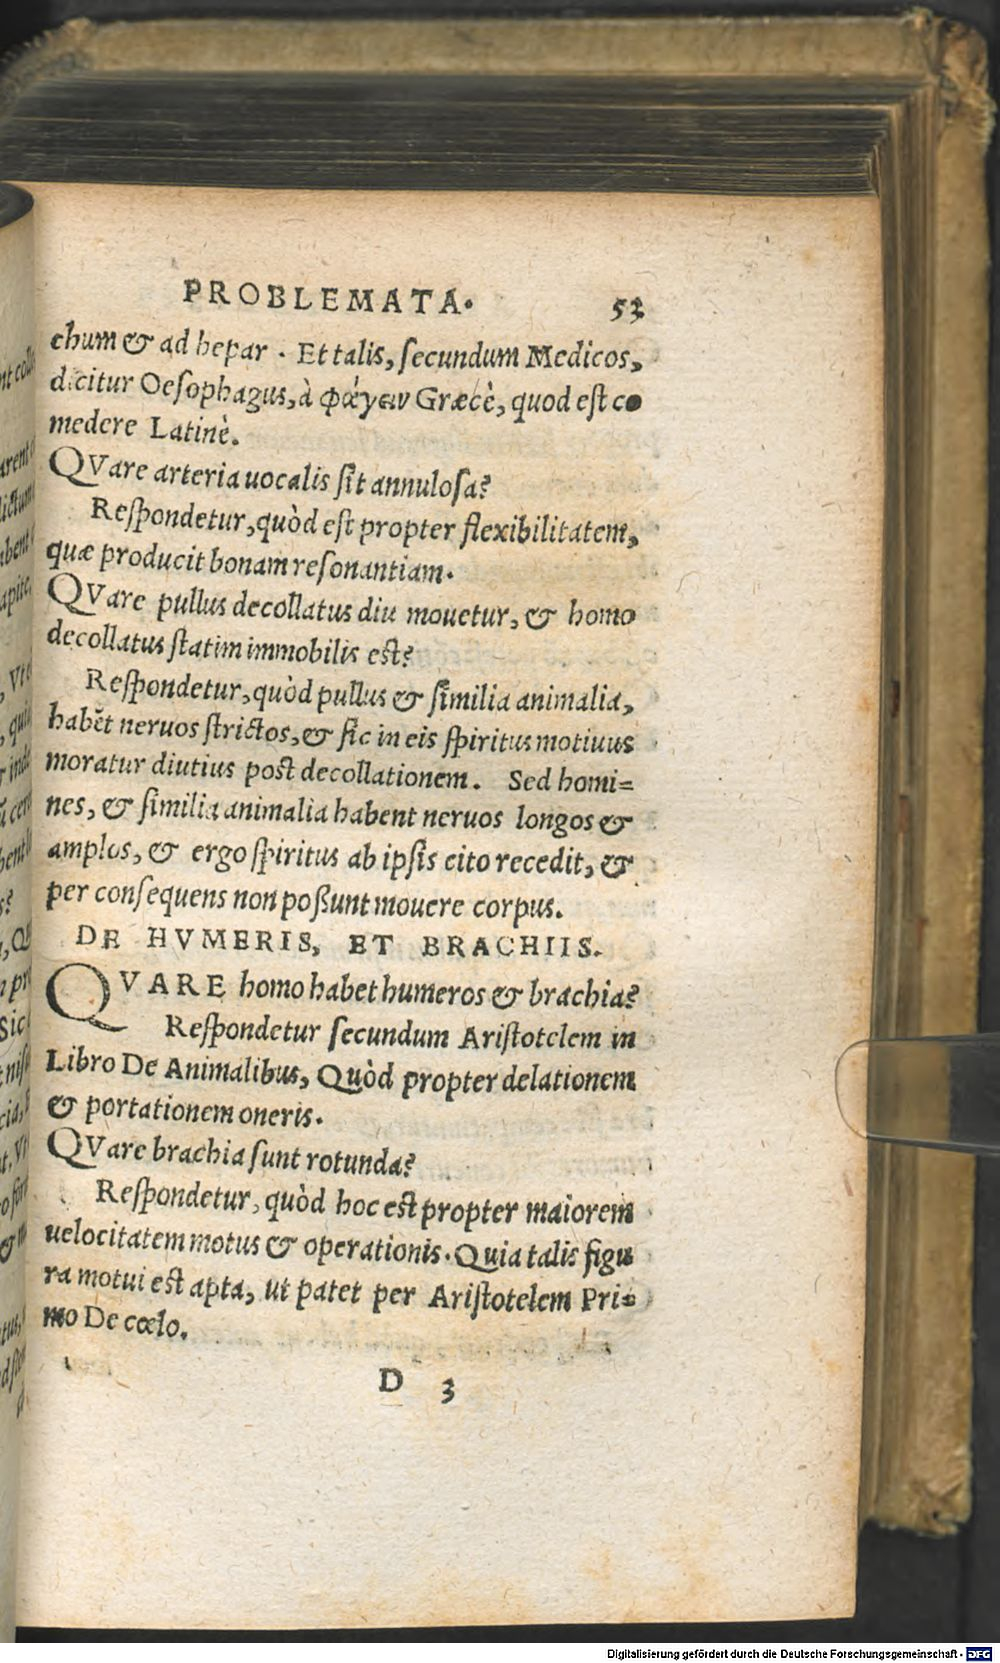 PROBLEMATA. 53
chum & ad hepar. Et talis, ſecundum Medicos,
dicitur Oeſophagus, à φάγειν Græcè, quod eſt co
medere Latinè.
QVare arteria uocalis ſit annuloſa?
Reſpondetur, quòd eſt propter flexibilitatem,
quæ producit bonam reſonantiam.
QVare pullus decollatus diu mouetur, & homo
decollatus ſtatim immobilis eſt?
Reſpondetur, quòd pullus & ſimilia animalia,
habēt neruos ſtrictos, & ſic in eis ſpiritus motiuus
moratur diutius poſt decollationem. Sed homi=
nes, & ſimilia animalia habent neruos longos &
amplos, & ergo ſpiritus ab ipſis cito recedit, &
per conſequens non poßunt mouere corpus.
DE HVMERIS, ET BRACHIIS.
QVARE homo habet humeros & brachia?
Reſpondetur ſecundum Ariſtotelem in
Libro De Animalibus, Quòd propter delationem
& portationem oneris.
QVare brachia ſunt rotunda?
Reſpondetur, quòd hoc eſt propter maiorem
uelocitatem motus & operationis. Quia talis figu
ra motui eſt apta, ut patet per Ariſtotelem Pri=
mo De cœlo.
D 3
Digitalisierung gefördert durch die Deutsche Forschungsgemeinschaft - DFG